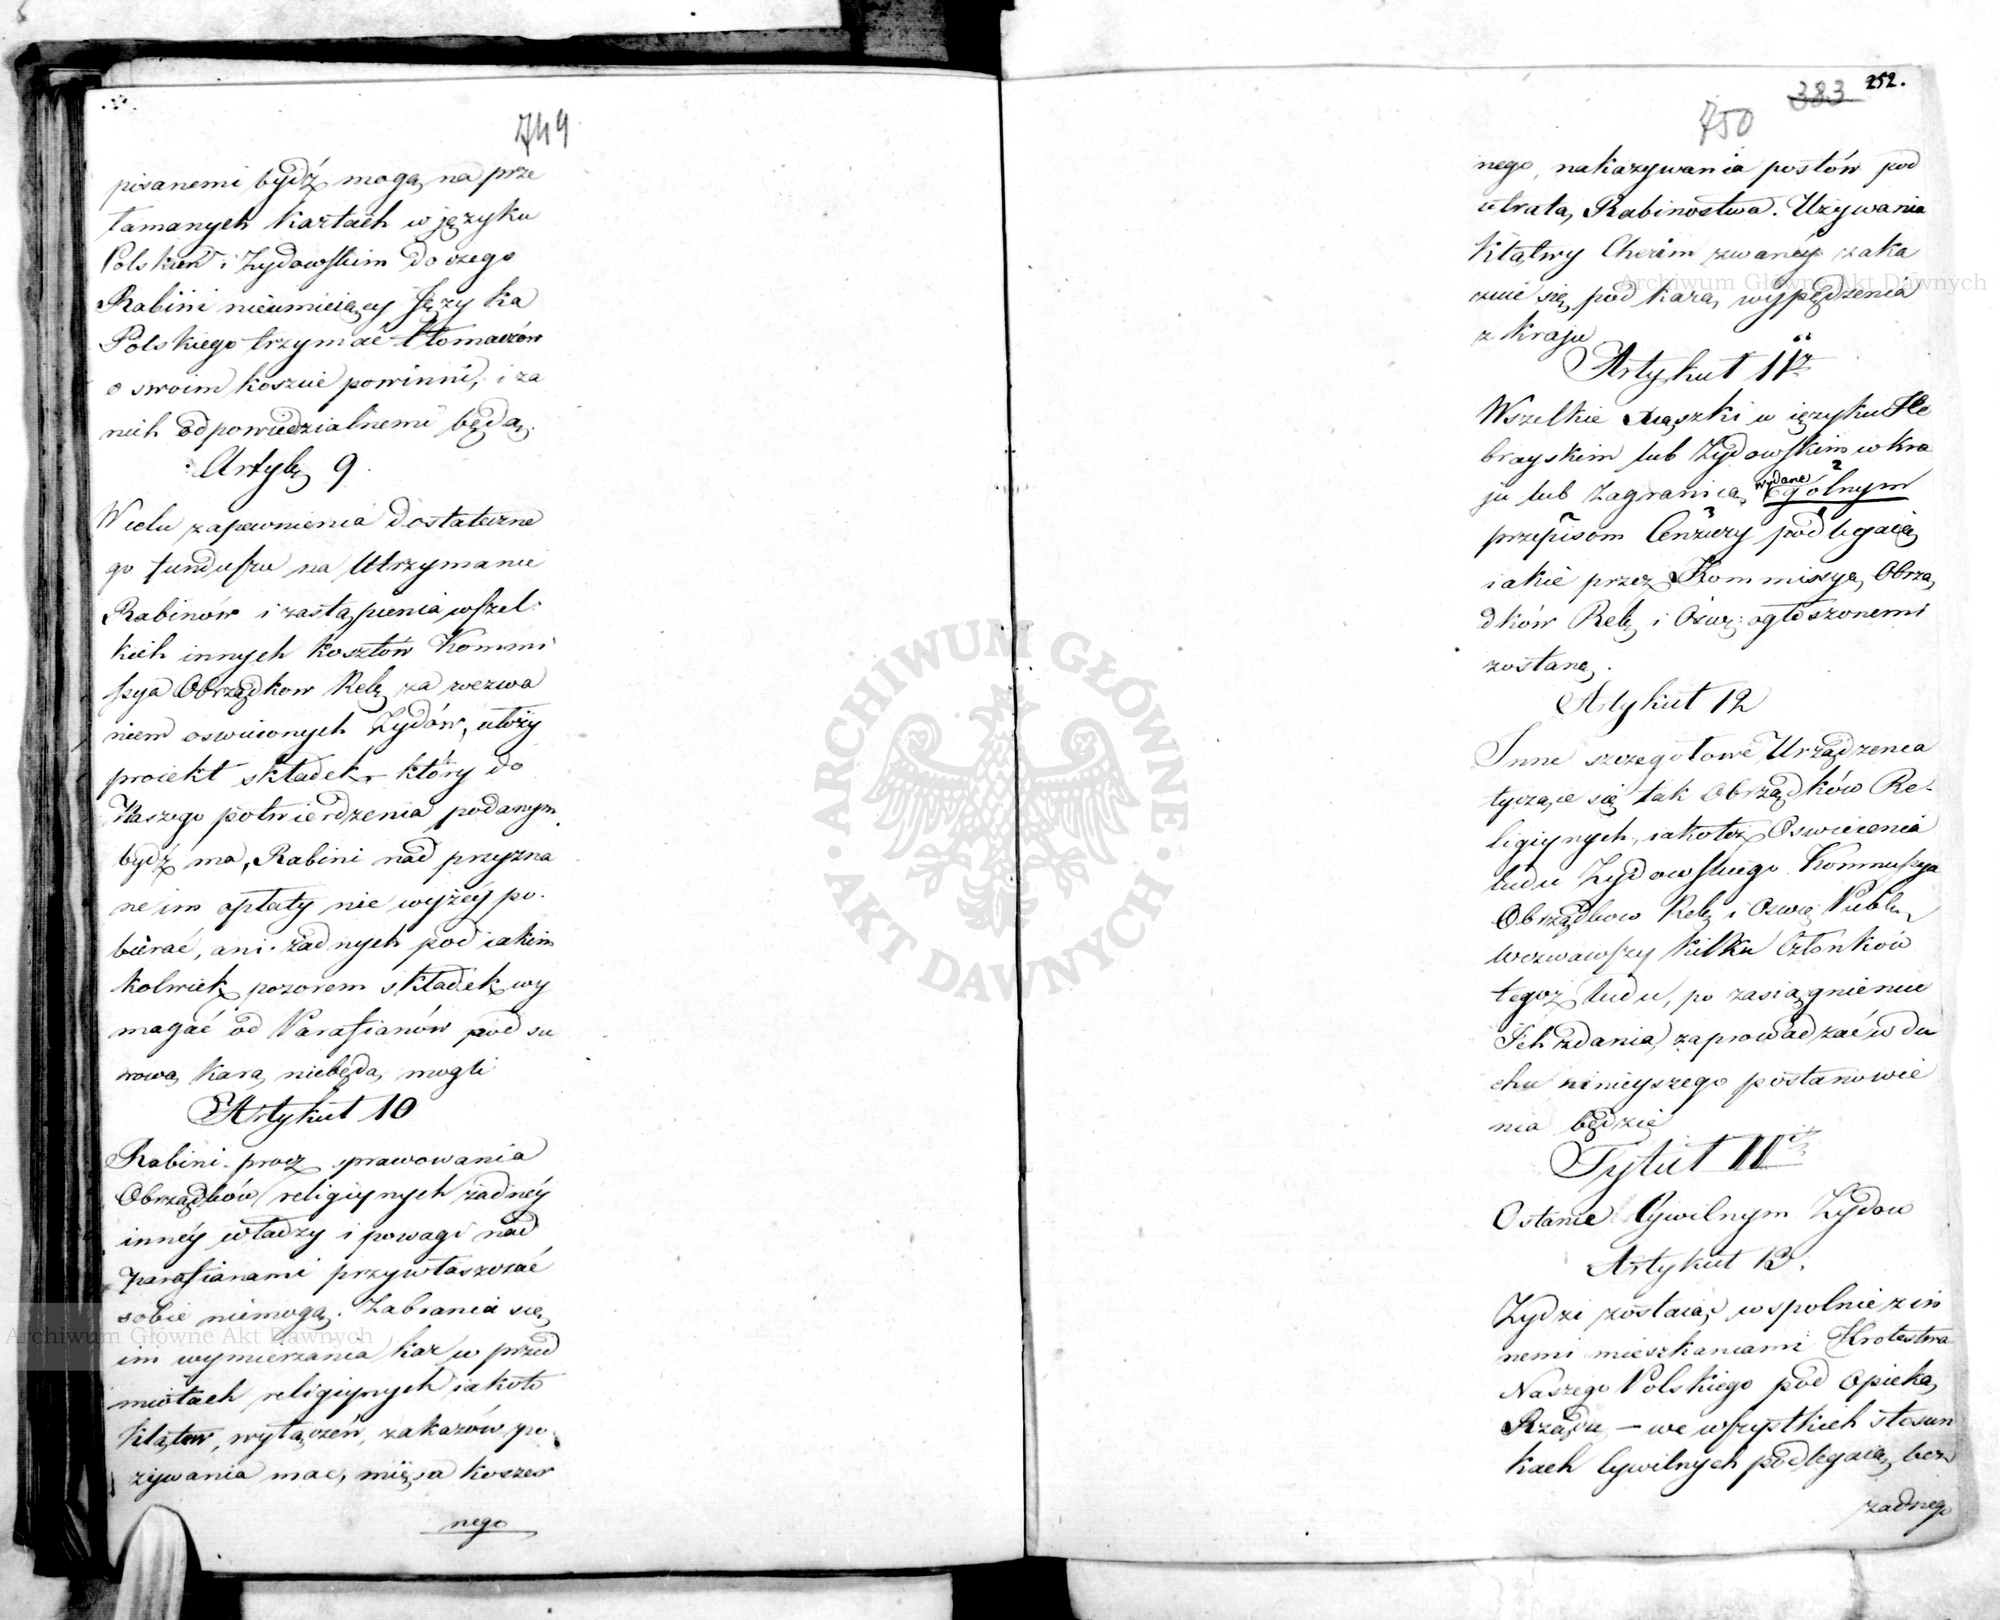 749
pisanemi bydź mogą, na prze
łamanych kartach w języku
Polskim i Żydowskim do czego
Rabini nieumieiący Języka
Polskiego trzymać tłomaczów
o swoim koszcie powinni, i za
nich odpowiedzialnemi będą.
Artykł 9.
W celu zapewnienia dostateczne
go funduszu na Utrzymanie
Rabinów i zastąpienia wszel-
kich innych kosztów Kommi
ssya Obrządkow Relig za wezwa
niem oswieconych Żydów, ułoży
proiekt składek, który do
Naszego potwierdzenia podanym
bydź ma, Rabini nad przyzna
ne im opłaty nie wyżéy po-
bierać, ani żadnych pod iakim
kolwiek pozorem składek wy
magać od Parafianów pod su
rową karą niebędą mogli
Artykuł 10
Rabini procz sprawowania
Obrządków religiynych żadnéy
innéy władzy i powagi nad
parafianami przywłaszczać
sobie niemogą. Zabrania się
im wymierzania kar w przed
miotach religiynych iakoto
klątew, wyłączeń, zakazów po-
żywania mac, mięsa koszer
nego
252.
383
750
nego, nakazywania postów pod
utratą Rabinostwa. Używania
klątwy Cherim zwanéy zaka
zuie się, pod karą wypędzenia
z kraju
Artykuł 11
Wszelkie Xiążki w ięzyku He
brayskim lub Żydowskim w kra
ju lub Zagranicą wydane ogólnym
przepisom Cenzury podlegaią
iakie przez Kommissyą Obrzą
dków Relig i Oświ: ogłoszonemi
zostaną.
Artykuł 12
Inne szczegółowe Urządzenia
tyczące się tak Obrządków Re-
ligiynych, iakoteż Oswiecenia
ludu Żydowskiego Kommissya
Obrządkow Relig i Oswie Publ
wezwawszy kilku Członków
tegoż ludu, po zasiągnieniu
Ich zdania, zaprowadzać w du
chu ninieyszego postanowie
nia będzie
Tytuł II
O stanie Cywilnym Żydow
Artykuł 13.
Żydzi zostaiąc wspolnie z in
nemi mieszkancami Krolestwa
Naszego Polskiego pod Opieką
Rządu — we wszystkich stosun
kach Cywilnych podlegaią, bez
żadnego
Archiwum Główne Akt Dawnych
Archiwum Główne Akt Dawnych
ARCHIWUM GŁÓWNE
AKT DAWNYCH